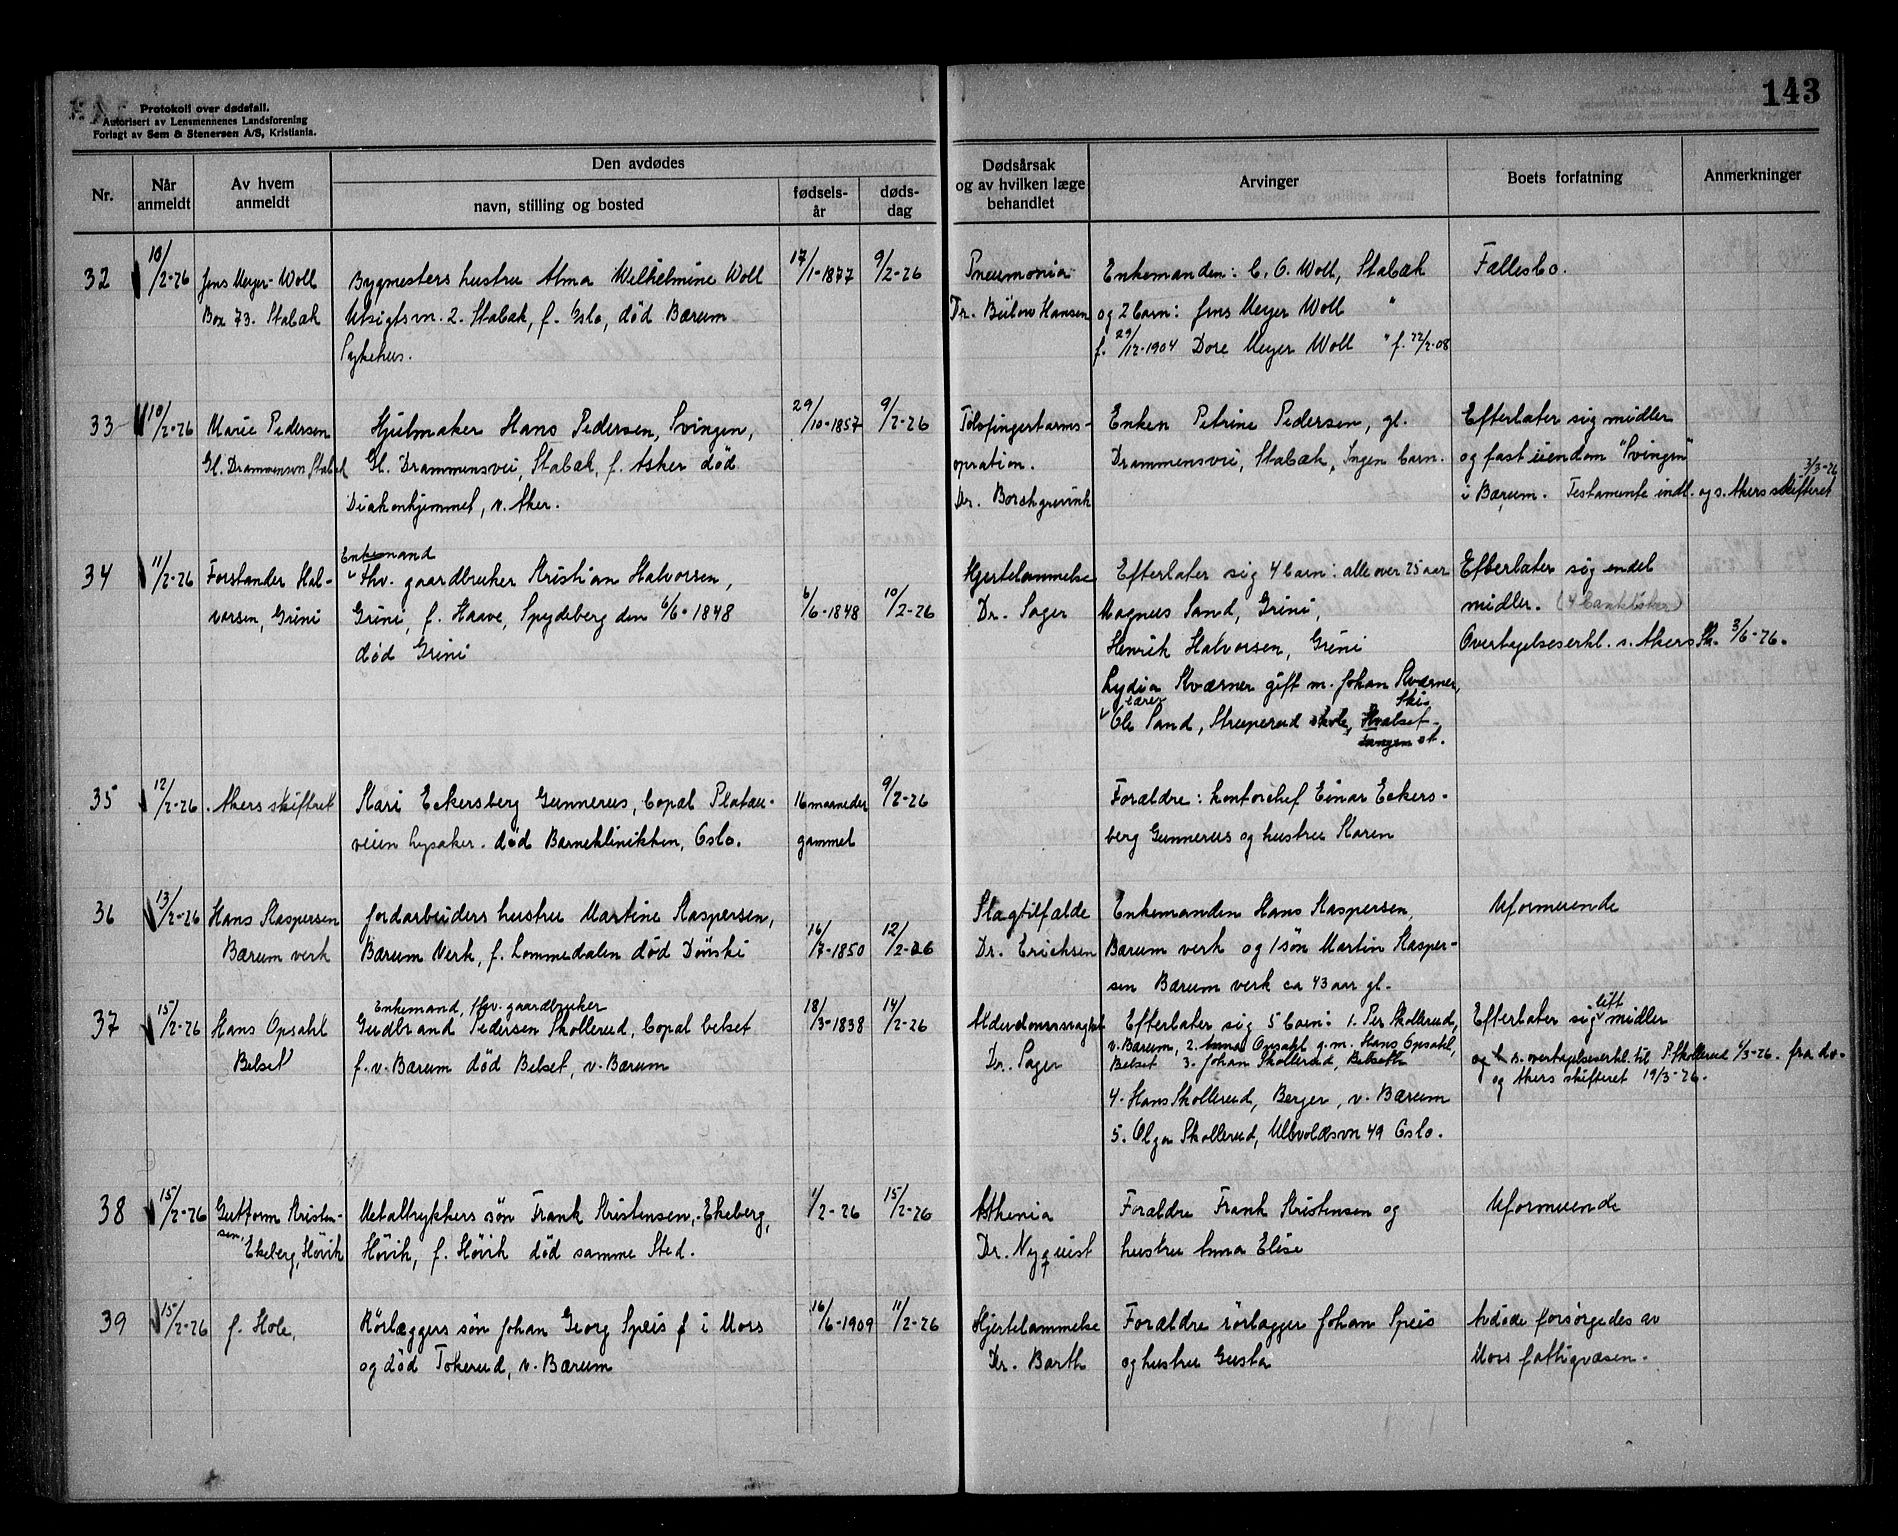 143
Protokoll over dødsfall.
Autorisert av Lensmennenes Landsforening
Forlagt av Sem & Stenersen A/S, Kristiania.
Nr.
Når anmeldt
Av hvem anmeldt
Den avdødes
navn, stilling og bosted
fødsels-
år
døds-
dag
Dødsårsak
og av hvilken læge
behandlet
Arvinger
Boets forfatning
Anmerkninger
32 10/2-26 Jens Meyer-Woll Bygmesters hustru Alma Wilhelmine Woll 17/1-1877 9/2-26 Pneumonia Enkemanden: C. O. Woll, Stabæk Fællesbo.
Box 73. Stabæk Utsigtsvn. 2. Stabæk, f. Oslo, død Bærum Dr. Bülow Hansen og 2 barn: Jens Meyer Woll "
Sykehus. f. 29/12-1904 Dore Meyer Woll " f. 22/2-08
33 10/2-26 Marie Pedersen Hjulmaker Hans Pedersen, Svingen, 29/10-1857 9/2-26 Tolvfingertarms- Enken Petrine Pedersen, gl. Efterlater sig midler
Gl. Drammensvn Stabæk Gl. Drammensvei, Stabæk, f. Asker død opration. Drammensvei, Stabæk, Ingen barn. og fast eiendom "Svingen"
Diakonhjemmet, v. Aker. Dr. Borchgrevink i Bærum. Testamente indl. og s. Akers skifteret 3/3-26
Enkemand
34 11/2-26 Forstander Hal- fhv. gaardbruker Kristian Halvorsen, 6/6-1848 10/2-26 Hjertelammelse Efterlater sig 4 barn: alle over 25 aar Efterlater sig endel
vorsen, Grini Grini, f. Haave, Spydeberg den 6/6-1848 Dr. Sager Magnus Sand, Grini, midler. (4 bankbøker)
død Grini Henrik Halvorsen, Grini Overtagelseserkl. s. Akers Sk. 3/6-26.
Lydia Kværner gift m. Johan Kværner,
Ski
lærer
Ole Sand, Struperud skole, Kralset-
tangen st.
35 12/2-26 Akers skifteret Kari Eckersberg Gunnerus, Copal Platau- 16 maaneder 9/2-26 Forældre: kontorchef Einar Eckers-
veien Lysaker. død Barneklinikken, Oslo. gammel berg Gunnerus og hustru Karen
36 13/2-26 Hans Kaspersen Jordarbeiders hustru Martine Kaspersen, 16/7-1850 12/2-26 Slagtilfælde Enkemanden Hans Kaspersen, Uformuende
Bærum verk Bærum Verk, f. Lommedalen død Dønski Dr. Erichsen Bærum verk og 1 søn Martin Kasper-
sen Bærum verk ca 43 aar gl.
Enkemand, fhv. gaardbruker
37 15/2-26 Hans Opsahl Gudbrand Pedersen Skollerud, Copal belset 18/3-1838 14/2-26 Alderdomssvaghet Efterlater sig 5 barn: 1. Per Skollerud, Efterlater sig litt midler
Belset f. v. Bærum død Belset, v. Bærum Dr. Sager v. Bærum, 2. Anna Opsahl g. m. Hans Opsahl, og s. overtagelseserkl. til P. Skollerud 1/3-26. fra do.
Belset 3. Johan Skollerud, Belseth og Akers skifteret 19/3-26.
4. Hans Skollerud, Berger, v. Bærum
5. Olga Skollerud, Ullevoldsvn 49 Oslo.
38 15/2-26 Guttorm Kristen- Metaltrykkers søn Frank Kristensen, Ekeberg, 1/2-26 15/2-26 Asthenia Forældre Frank Kristensen og Uformuende
sen, Ekeberg, Høvik Høvik, f. Høvik død samme Sted. Dr. Nyquist hustru Anna Elise
39 15/2-26 f. Hole, Rørlæggers søn Johan Georg Speis f i Moss 16/6-1909 11/2-26 Hjertelammelse Forældre rørlægger Johan Speis Avdøde forsørgedes av
og død Tokerud, v. Bærum Dr. Barth og hustru Gusta Moss fattigvæsen.